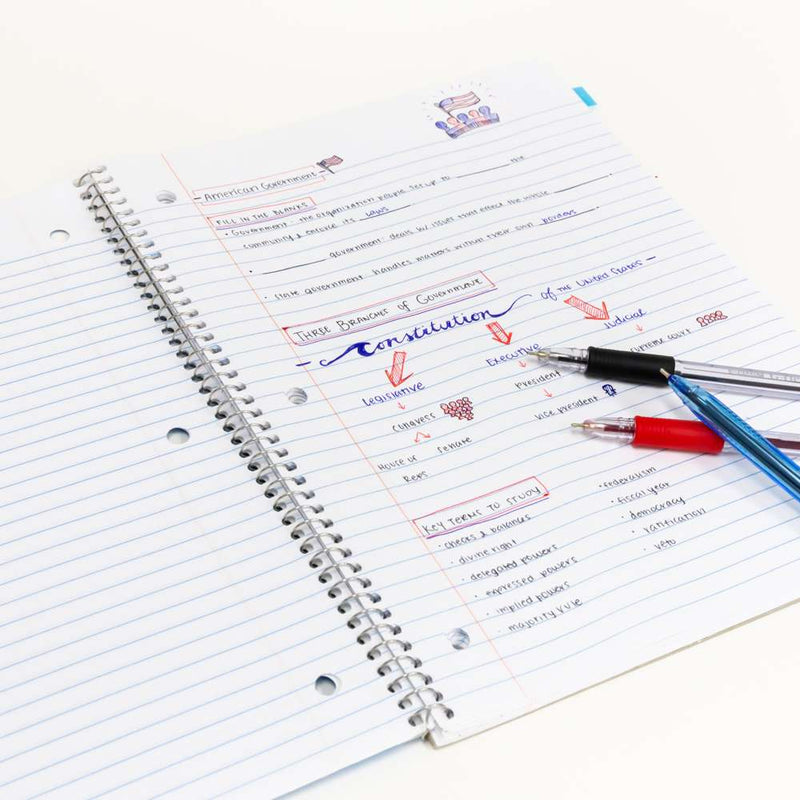 - American Government -
FILL IN THE BLANKS
• Government: the organization people set up to ________ the
community & enforce its laws.
• ________ government: deals w/ issues that effect the whole ________.
• state government: handles matters within their own borders.
THREE BRANCHES OF GOVERNMENT
- Constitution of the United States -
Legislative Executive Judicial
congress President supreme court
House of Reps senate vice president
KEY TERMS TO STUDY
• checks & balances
• divine right
• delegated powers
• expressed powers
• implied powers
• majority rule
• federalism
• fiscal year
• democracy
• ratification
• veto